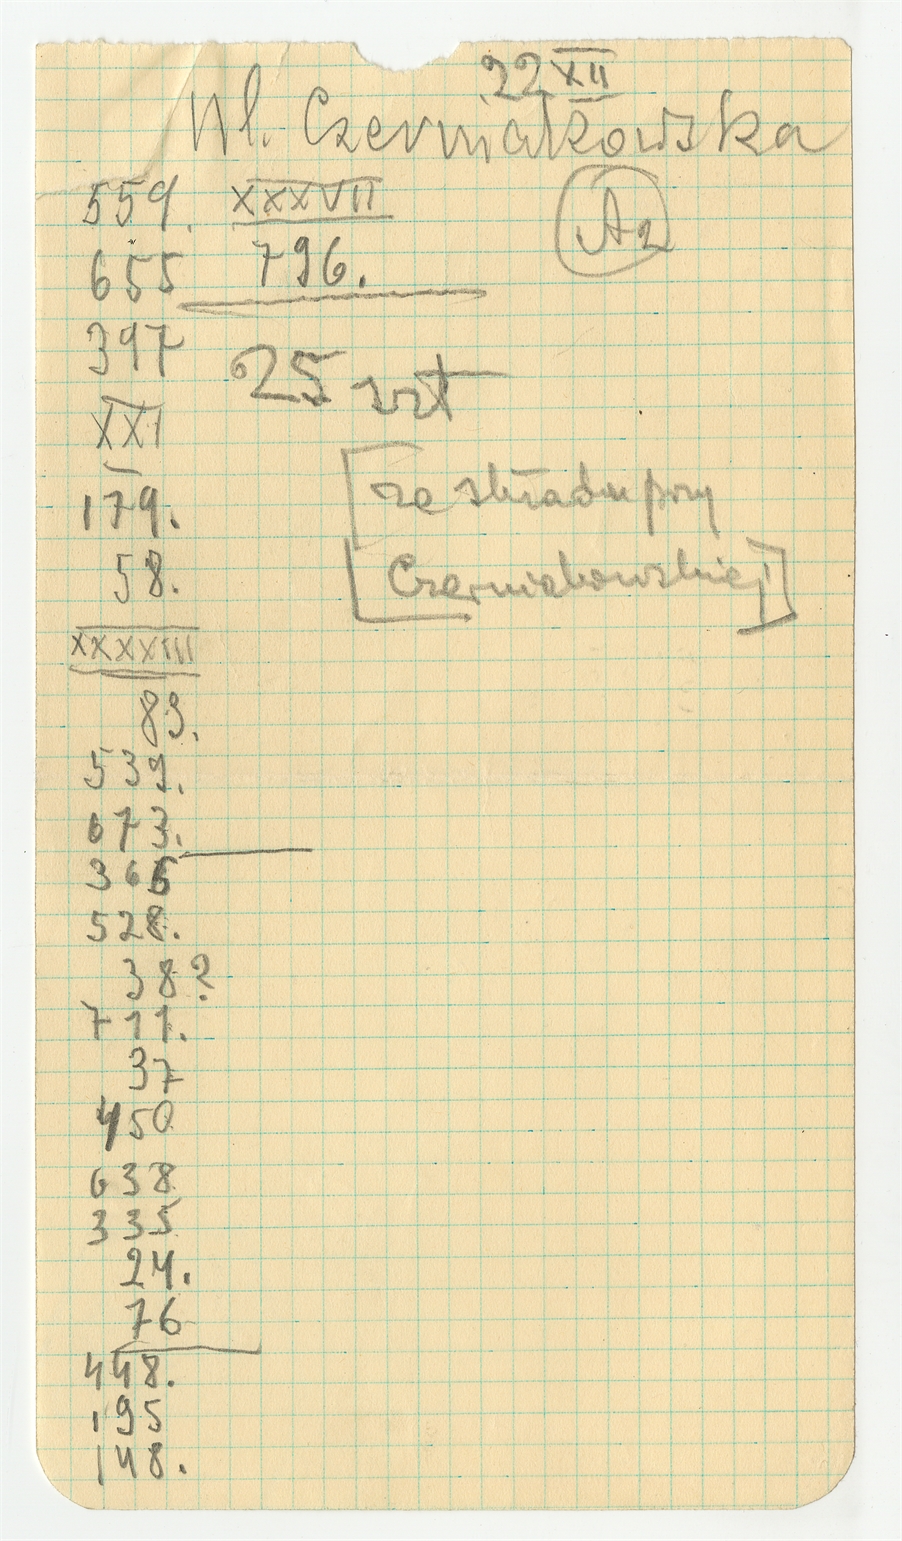 22 XII
Ul. Czerniakowska
559. XXXVII
A2
655 796.
397
25 szt
XXI
[ze składu przy
179.
Czerniakowskiej]
58.
XXXXVIII
83.
539.
673.
366
528.
38?
711.
37
450
638
335
24.
76
448.
195
148.